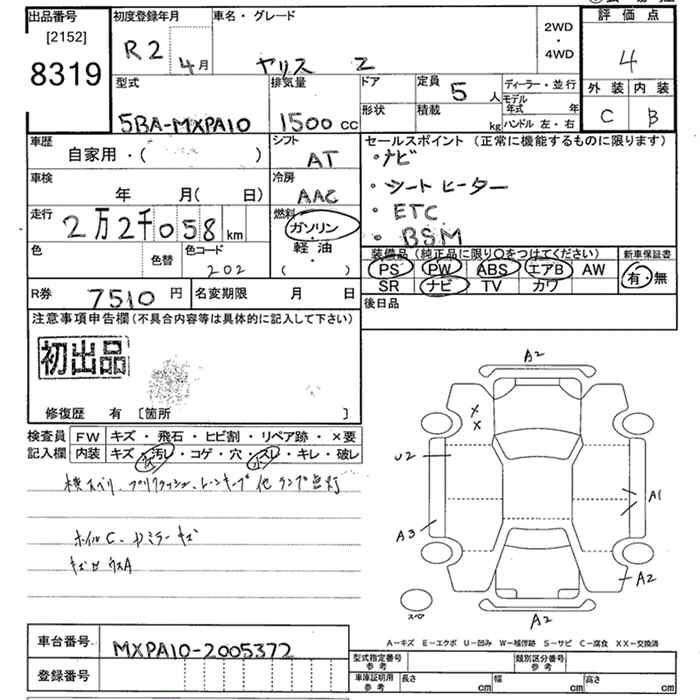 出品番号 [2152] 8319
初度登録年月 R2 4月
車名・グレード ヤリス Z
2WD・4WD
評価点 4
外装 C 内装 B
型式 5BA-MXPA10
排気量 1500cc
ドア 形状
定員 5人
積載 kg
ディーラー・並行
モデル年式 年
ハンドル 左・右
車歴 自家用・( )
シフト AT
車検 年 月( 日)
冷房 AAC
走行 2万2千058km
燃料 ガソリン・軽油・( )
色 色替 色コード 202
R券 7510円 名変期限 月 日
セールスポイント (正常に機能するものに限ります)
・ナビ
・シートヒーター
・ETC
・BSM
装備品(純正品に限り○をつけてください)
PS PW ABS エアB AW
SR ナビ TV カワ
新車保証書 有・無
後日品
注意事項申告欄(不具合内容等は具体的に記入して下さい)
初出品
修復歴 有 [箇所 ]
検査員記入欄
FW キズ・飛石・ヒビ割・リペア跡・×要
内装 キズ・汚レ・コゲ・穴・スレ・キレ・破レ
他ランプ点灯
ホイルC
ミラーキズ
A2
U2
A3
A1
A2
A2
A-キズ E-エクボ U-凹み W-補修跡 S-サビ C-腐食 XX-交換済
車台番号 MXPA10-2005372
登録番号
型式指定番号参考
類別区分番号参考
車庫証明用参考 長さ cm 幅 cm 高さ cm